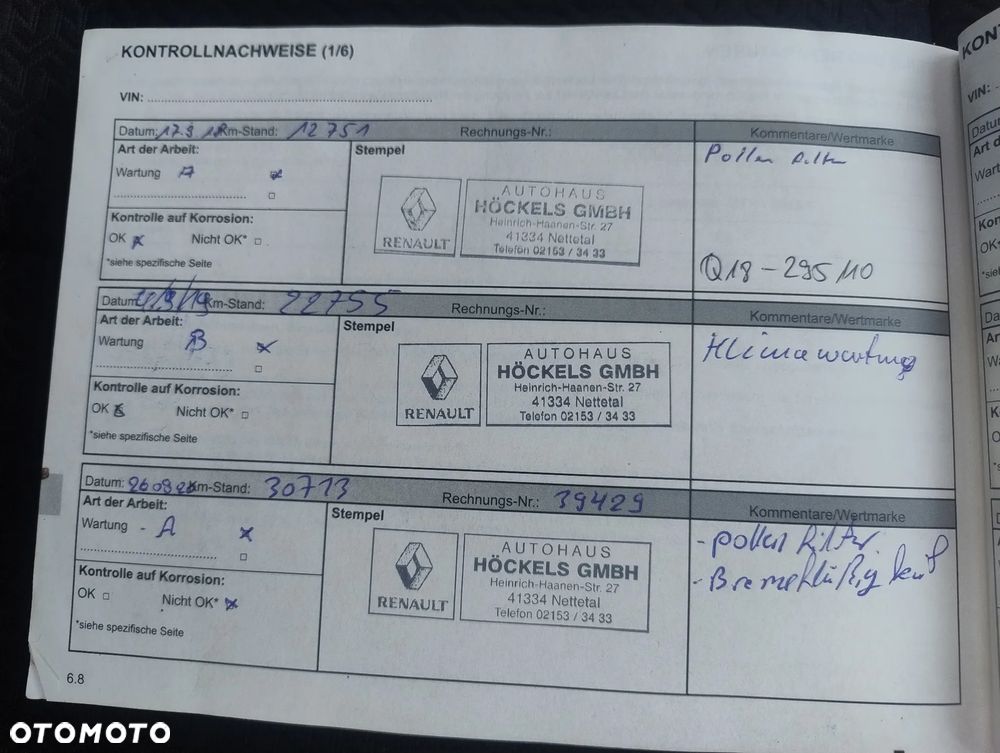 KONTROLLNACHWEISE (1/6)
VIN:
Datum: 17.9 18 Km-Stand: 12 751 Rechnungs-Nr.: Kommentare/Wertmarke
Art der Arbeit: Stempel
Wartung A
Pollen
AUTOHAUS
HÖCKELS GMBH
Heinrich-Haanen-Str. 27
41334 Nettetal
Telefon 02153 / 34 33
RENAULT
Kontrolle auf Korrosion:
OK x Nicht OK*
*siehe spezifische Seite
Q18-295110
Datum: 4/9/19 Km-Stand: 22755 Rechnungs-Nr.: Kommentare/Wertmarke
Art der Arbeit: Stempel
Wartung B x
Klimawartung
AUTOHAUS
HÖCKELS GMBH
Heinrich-Haanen-Str. 27
41334 Nettetal
Telefon 02153 / 34 33
RENAULT
Kontrolle auf Korrosion:
OK x Nicht OK*
*siehe spezifische Seite
Datum: 260920 Km-Stand: 30713 Rechnungs-Nr.: 39429 Kommentare/Wertmarke
Art der Arbeit: Stempel
Wartung - A x
- pollen filter
- Bremsflüßigkeit
AUTOHAUS
HÖCKELS GMBH
Heinrich-Haanen-Str. 27
41334 Nettetal
Telefon 02153 / 34 33
RENAULT
Kontrolle auf Korrosion:
OK Nicht OK* x
*siehe spezifische Seite
6.8
VIN:
OTOMOTO